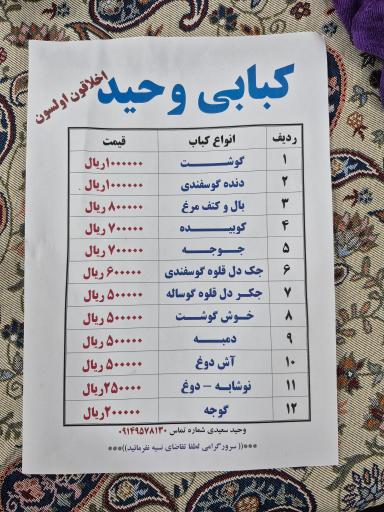 کبابی وحید
اخلاقون اولسون
ردیف انواع کباب قیمت
۱ گوشت ۱۰۰۰۰۰۰ریال
۲ دنده گوسفندی ۱۰۰۰۰۰۰ریال
۳ بال و کتف مرغ ۸۰۰۰۰۰ ریال
۴ کوبیده ۷۰۰۰۰۰ ریال
۵ جوجه ۷۰۰۰۰۰ ریال
۶ جک دل قلوه گوسفندی ۶۰۰۰۰۰ ریال
۷ جگر دل قلوه گوساله ۵۰۰۰۰۰ ریال
۸ خوش گوشت ۵۰۰۰۰۰ ریال
۹ دمبه ۵۰۰۰۰۰ ریال
۱۰ آش دوغ ۵۰۰۰۰۰ ریال
۱۱ نوشابه - دوغ ۲۵۰۰۰۰ریال
۱۲ گوجه ۲۰۰۰۰۰ریال
وحید سعیدی شماره تماس ۰۹۱۴۹۵۷۸۱۳۰
***(( سرورگرامی لطفا تقاضای نسیه نفرمائید))***